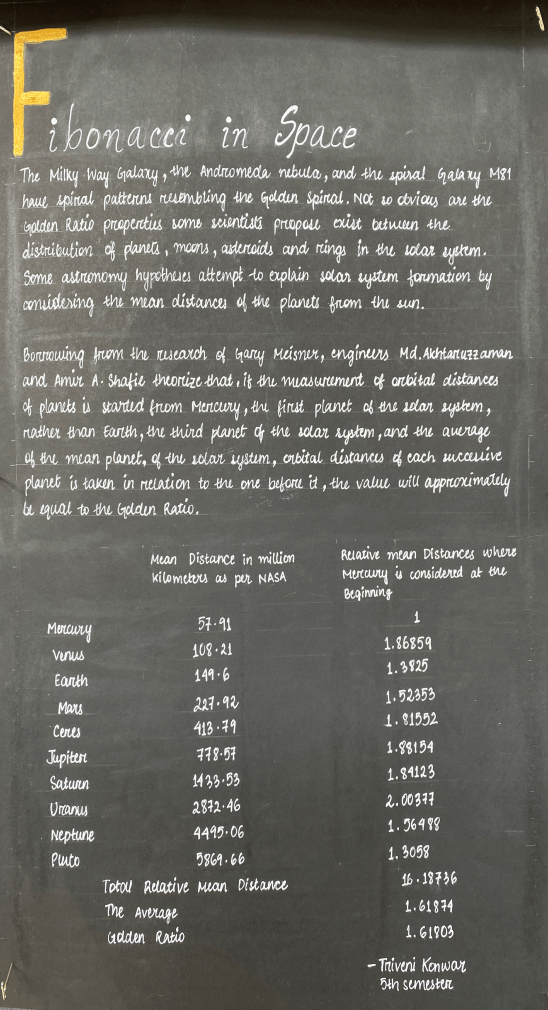 Fibonacci in Space
The Milky Way Galaxy, the Andromeda nebula, and the spiral Galaxy M81
have spiral patterns resembling the Golden Spiral. Not so obvious are the
Golden Ratio properties some scientists propose exist between the
distribution of planets, moons, asteroids and rings in the solar system.
Some astronomy hypotheses attempt to explain solar system formation by
considering the mean distances of the planets from the sun.
Borrowing from the research of Gary Meisner, engineers Md. Akhtaruzzaman
and Amir A. Shafie theorize that, if the measurement of orbital distances
of planets is started from Mercury, the first planet of the solar system,
rather than Earth, the third planet of the solar system, and the average
of the mean planet, of the solar system, orbital distances of each successive
planet is taken in relation to the one before it, the value will approximately
be equal to the Golden Ratio.
Mean Distance in million
Kilometers as per NASA
Relative mean Distances where
Mercury is considered at the
Beginning
Mercury 57.91 1
Venus 108.21 1.86859
Earth 149.6 1.3825
Mars 227.92 1.52353
Ceres 413.79 1.81552
Jupiter 778.57 1.88154
Saturn 1433.53 1.84123
Uranus 2872.46 2.00377
Neptune 4495.06 1.56488
Pluto 5869.66 1.3058
Total Relative Mean Distance 16.18736
The Average 1.61874
Golden Ratio 1.61803
- Triveni Konwar
5th semester